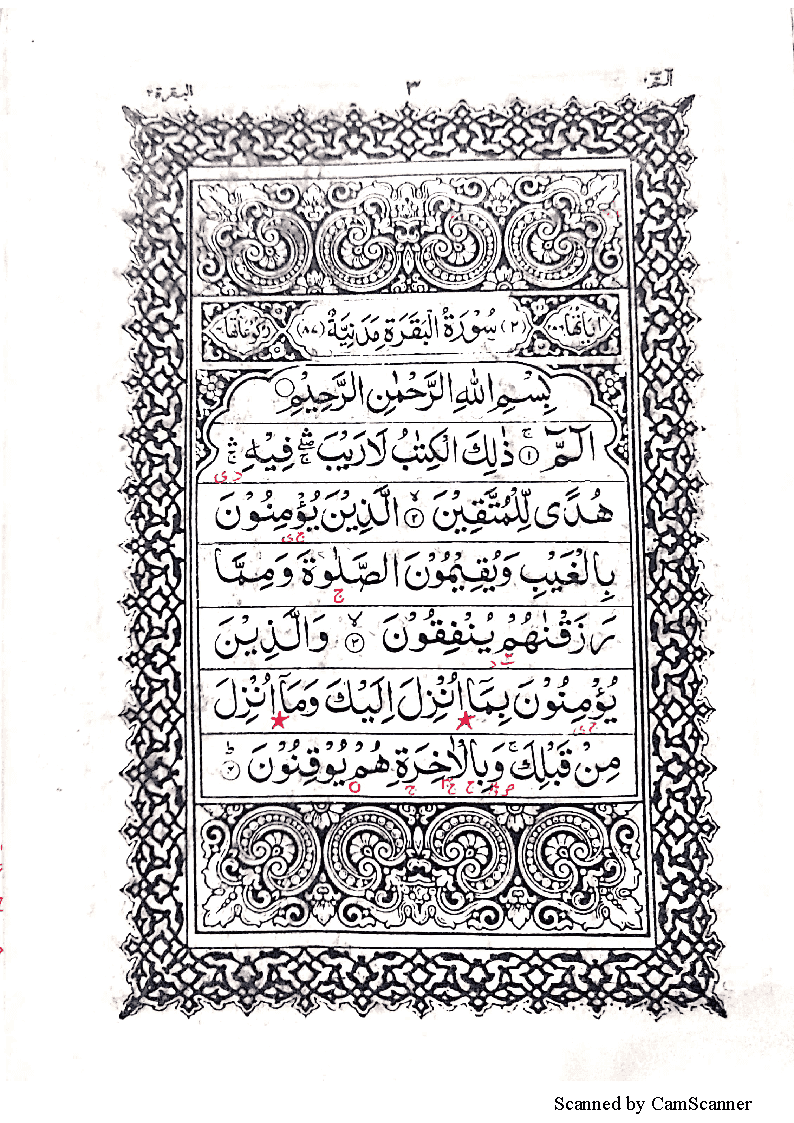 الٓمّٓ ١
٣
البقرة ٢
اٰیاتها
(٢) سُوْرَةُ الْبَقَرَةِ مَدَنِيَّةٌ (٨٧)
رکوعاتها
بِسْمِ اللّٰهِ الرَّحْمٰنِ الرَّحِيْمِ
الٓمّٓ ۚ ١ ذٰلِكَ الْكِتٰبُ لَا رَيْبَ ۛۖۚ فِيْهِ ۛۚ
هُدًى لِّلْمُتَّقِيْنَ ۙ ٢ الَّذِيْنَ يُؤْمِنُوْنَ
بِالْغَيْبِ وَيُقِيْمُوْنَ الصَّلٰوةَ وَمِمَّا
رَزَقْنٰهُمْ يُنْفِقُوْنَ ۙ ٣ وَالَّذِيْنَ
يُؤْمِنُوْنَ بِمَآ اُنْزِلَ اِلَيْكَ وَمَآ اُنْزِلَ
مِنْ قَبْلِكَ ۚ وَبِالْاٰخِرَةِ هُمْ يُوْقِنُوْنَ ؕ ٤
Scanned by CamScanner